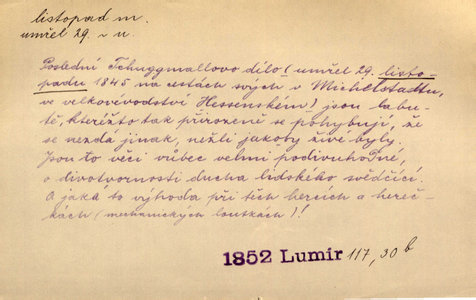 listopad m.
umřel 29. v n.
Poslední Tschuggmallovo dílo (umřel 29. listo-
padu 1845 na cestách svých v Michelstadtu,
ve velkovévodství Hessenském) jsou labu-
tě, kteréžto tak přirozeně se pohybují, že
se nezdá jinak, nežli jakoby živé byly.
Jsou to věci vůbec velmi podivuhodné,
o divotvornosti ducha lidského svědčící.
A jaká to výhoda při těch hercích a hereč-
kách (mechanických loutkách)!
1852 Lumír 117, 30 b